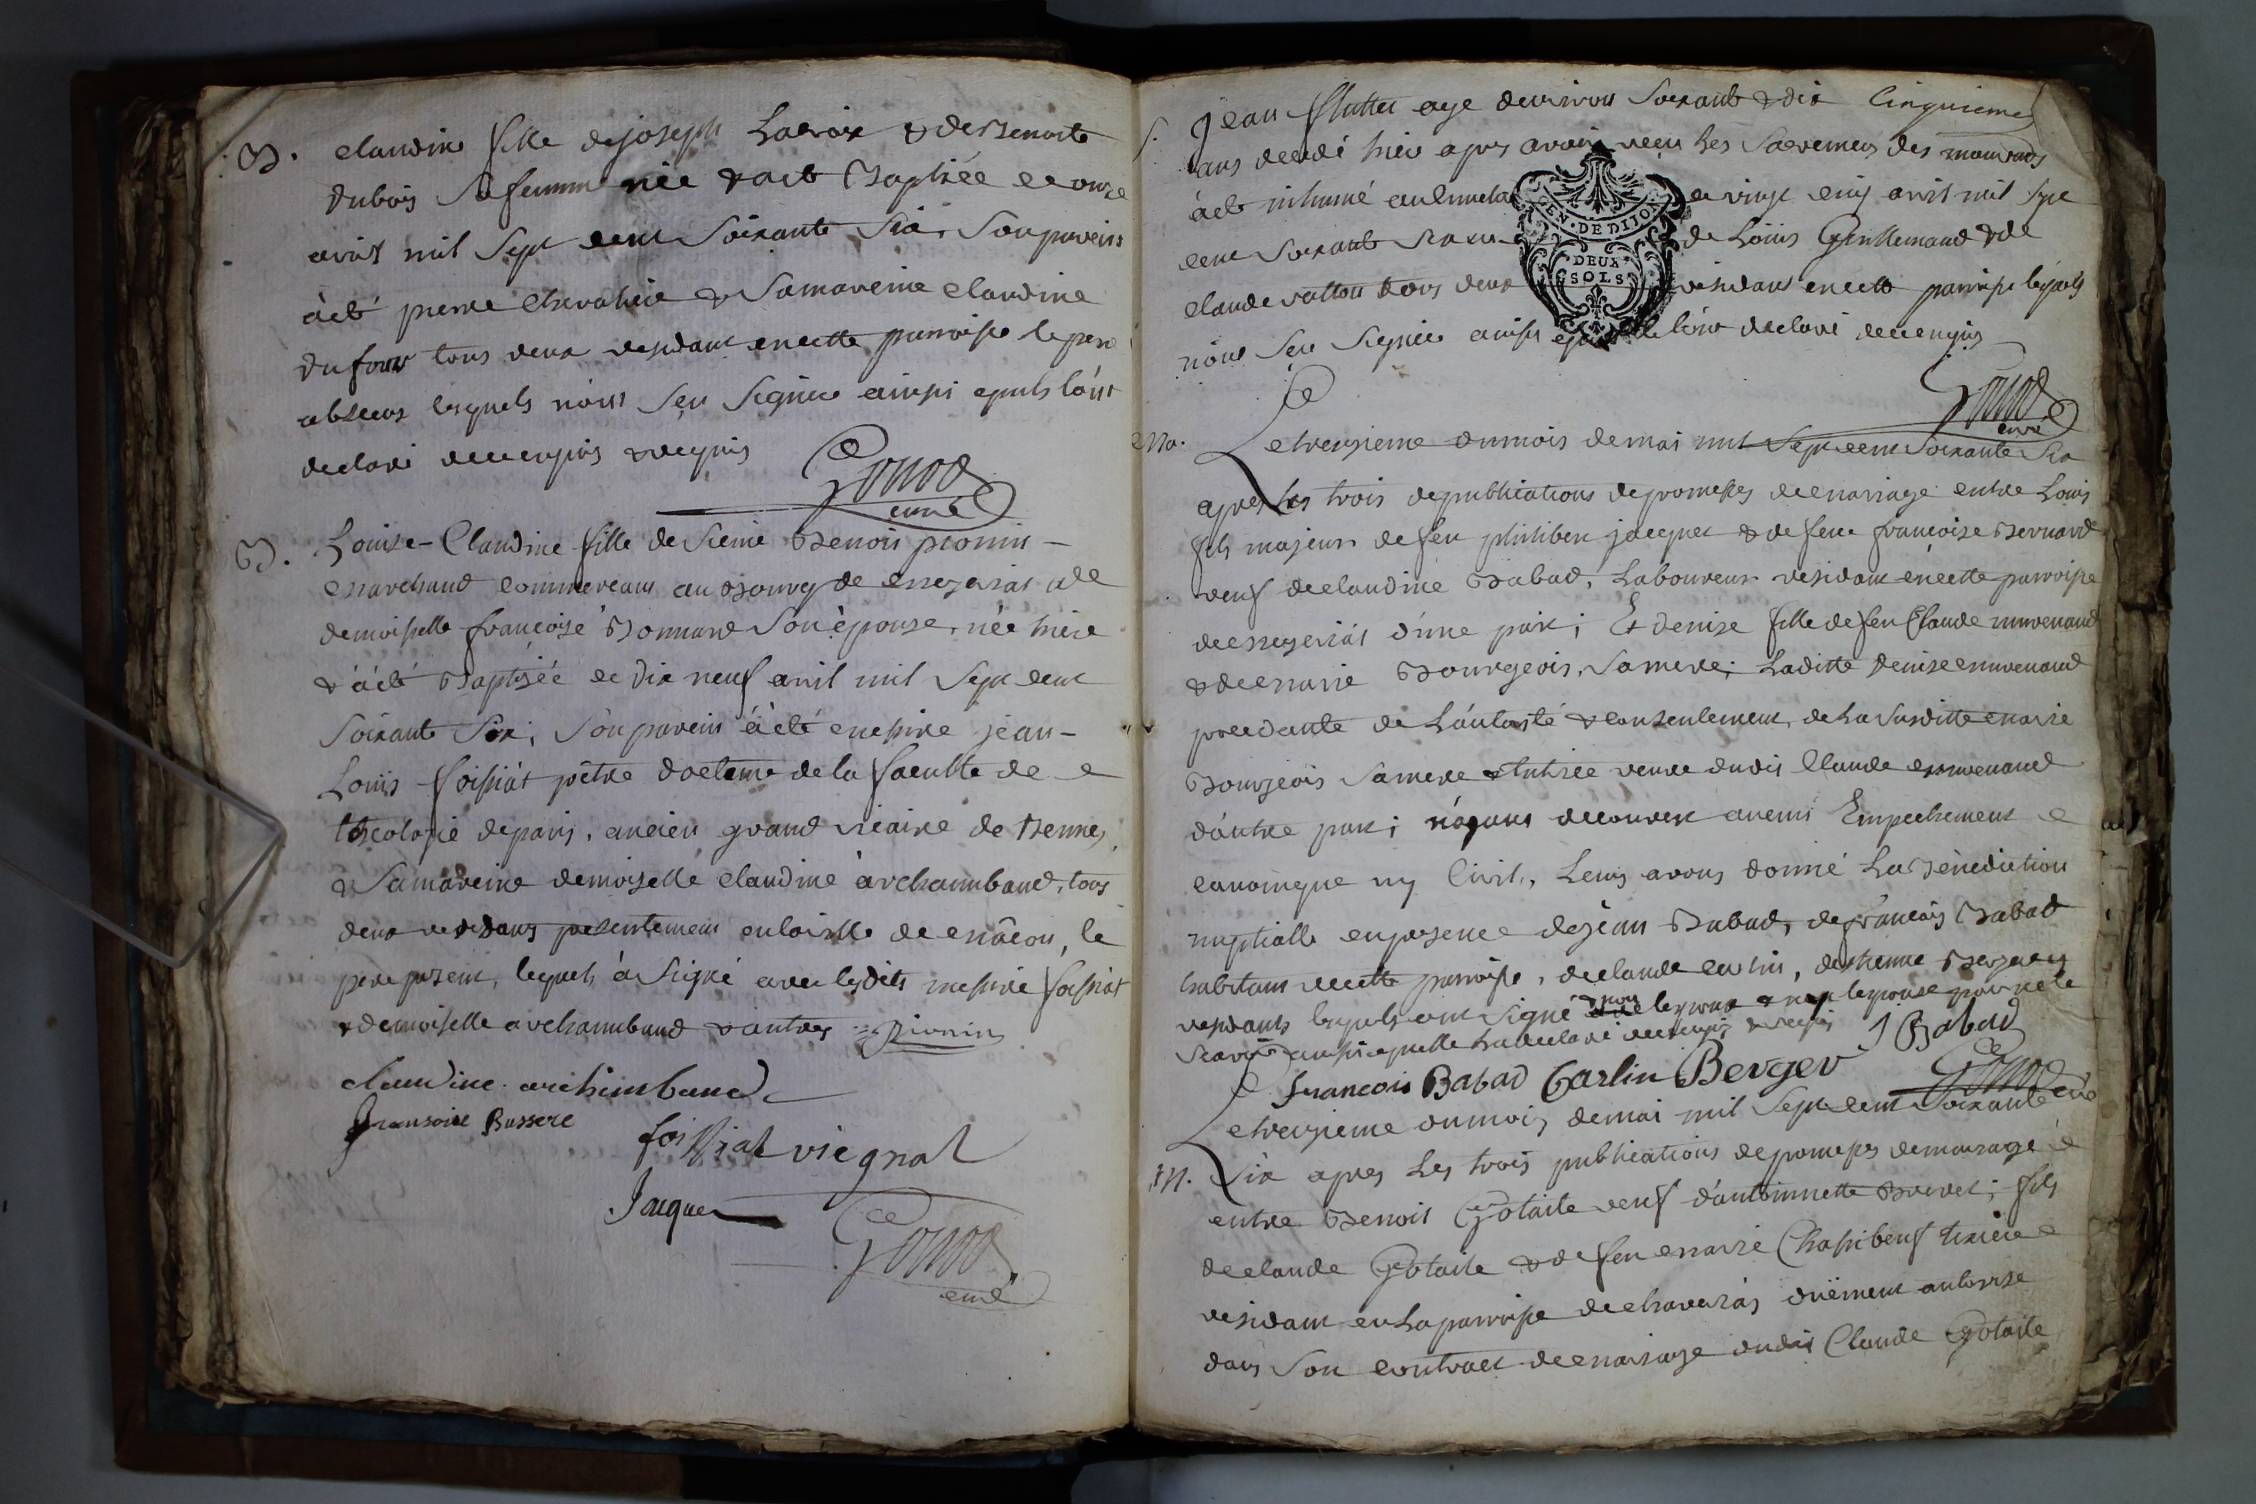 B. Claudine fille de joseph Lacroix & de Benoite
dubois Sa femme née & a été Baptisée le onze
avril mil Sept cent Soixante Six, Son parein
à été pierre Chevalier & Sa mareine Claudine
dufour tous deux residant en cette parroisse le pere
absent lesquels n'ont Sçu Signer ainsi qu'ils l'ont
declaré de ce enquis & requis
Gonod
curé
B. Louise-Claudine fille de Sieur Benois
Marchand Commercant au Bourg de & de
demoiselle françoise Bonnard Son épouse, née hier
& à été Baptisée le dix neuf avril mil Sept cent
Soixante Six; Son parein à été messire jean-
Louis foissiat prêtre docteur de la faculté de
théologie de paris, ancien grand vicaire de Rennes,
& Sa mareine demoiselle Claudine archambaud, tous
deux residans presentement en la ville de mâcon, le
pere present, lequel à Signé avec lesdits messire foissiat
& demoiselle archambaud & autres
Claudine archimbaud
fransoise Bussere
foissiat viegnal
Jaques
Gonod
curé
S. Jean age d'environ Soixante & dix Cinquieme
ans decedé hier apres avoir reçu Les Sacremens des mourans
à été inhumé au Cimetiere le vingt cinq avril mil Sept
cent Soixante Six de Loüis Guillemaud & de
Claude tous deux residant en cette parroisse lesquels
n'ont Sçu Signer ainsi qu'ils l'ont declaré de ce enquis
GEN · DE DIJON
DEUX
SOLS
Gonod
curé
Ma. Le treizieme du mois de mai mil Sept cent Soixante Six
apres Les trois publications de promesses de mariage entre Louis
fils majeur de feu philibert jacquet & de feue françoise Bernard
veuf de Claudine Babad, Laboureur residant en cette parroisse
de d'une part; Et denise fille de feu Claude
& de marie Bourgeois, Sa mere; Laditte denise
procedante de L'autorité & consentement, de La Susditte marie
Bourgeois Sa mere & tutrice veuve dudit Claude
d'autre part; n'ayant decouvert aucun Empechement
canonique ny Civil, Leur avons donné La Bénédiction
nuptialle en presence de jean Babad, de françois Babad
habitans de cette parroisse, de Claude Carlin, d'etienne Berger
residants lesquels ont Signé non l'epoux & l'epouse pour ne le
Scavoir ainsi qu'elle L'a declaré de ce enquis & requis J Babad
francois Babad Carlin Berger Gonod curé
M. Le treizieme du mois de mai mil Sept cent Soixante
Six apres Les trois publications de promesses de mariage
entre Benoit veuf d'antoinette; fils
de Claude & de feu marie Chassibeuf tixier
residant en La parroisse de chaveiria düement autorisé
dans Son contract de mariage dudit Claude